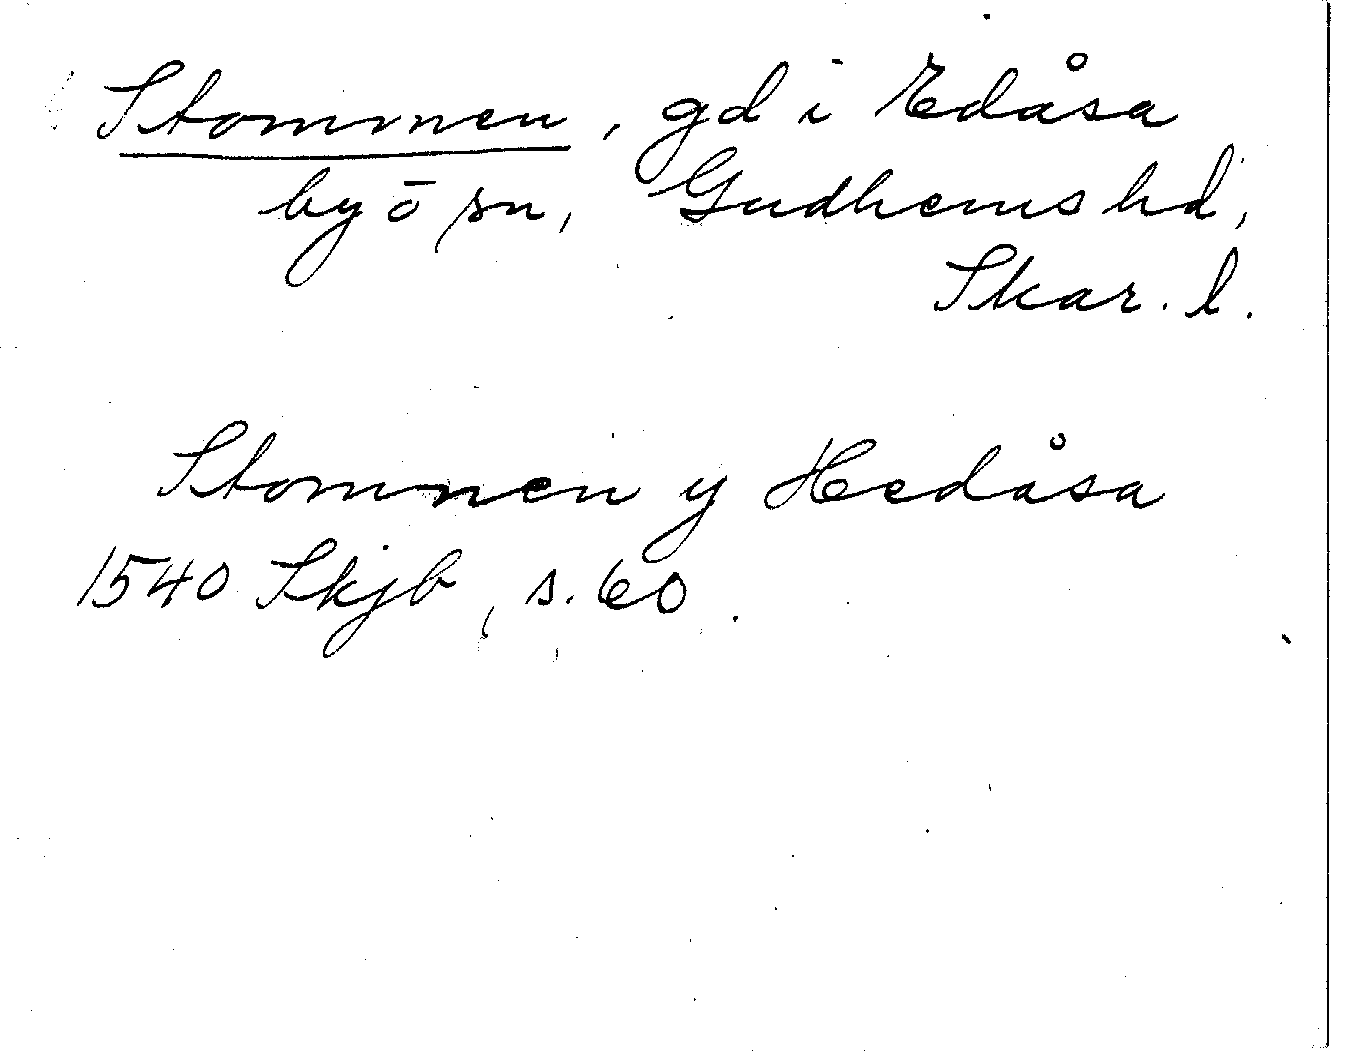 Stommen, gd i Edåsa
by ō sn, Gudhems hd,
Skar. l.
Stommen y Hedåsa
1540 Skjb, s. 60.